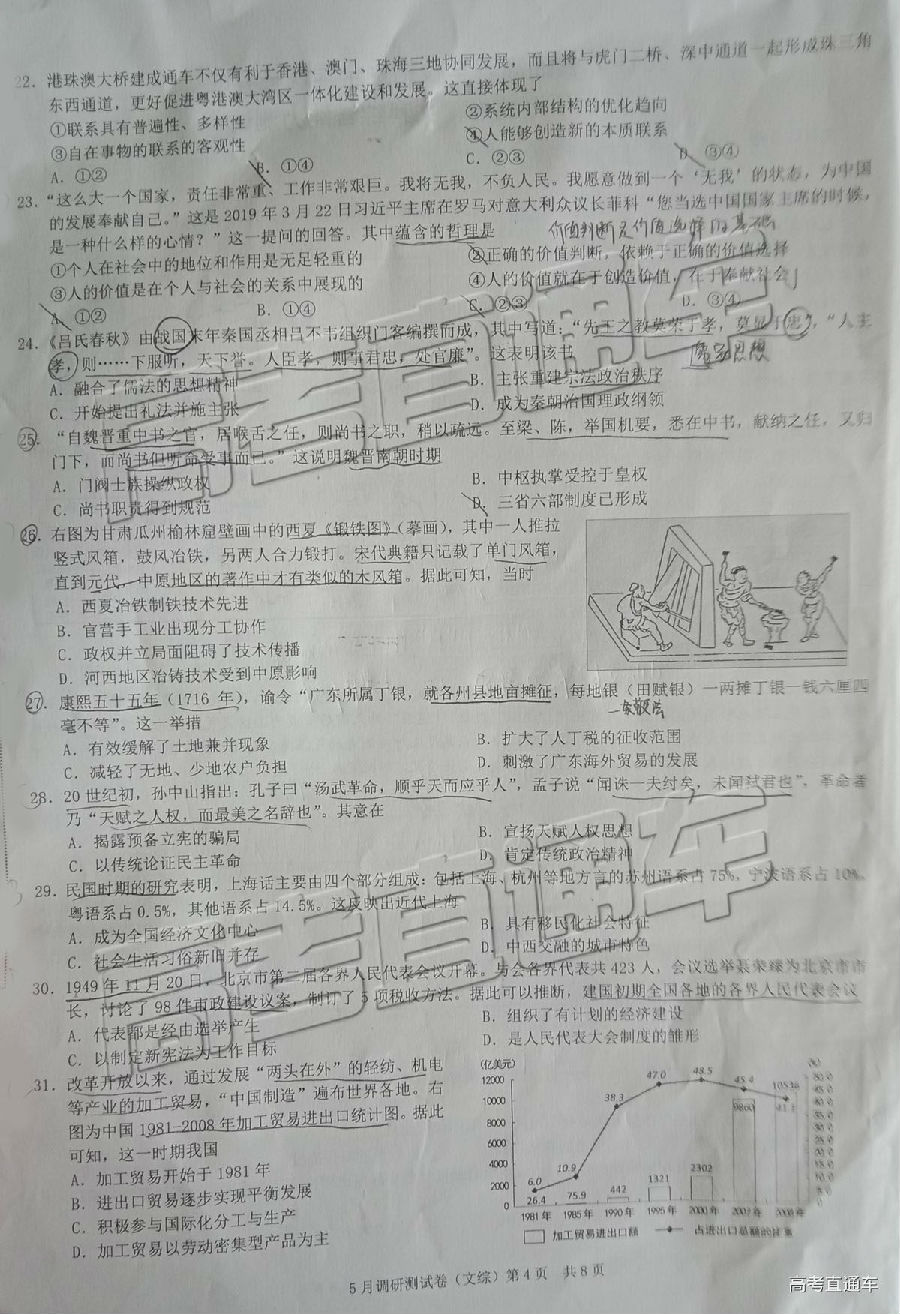 22. 港珠澳大桥建成通车不仅有利于香港、澳门、珠海三地协同发展，而且将与虎门二桥、深中通道一起形成珠三角
东西通道，更好促进粤港澳大湾区一体化建设和发展。这直接体现了
①联系具有普遍性、多样性 ②系统内部结构的优化趋向
③自在事物的联系的客观性 ④人能够创造新的本质联系
A. ①② B. ①④ C. ②③ D. ③④
23. “这么大一个国家，责任非常重、工作非常艰巨。我将无我，不负人民。我愿意做到一个‘无我’的状态，为中国
的发展奉献自己。”这是 2019 年 3 月 22 日习近平主席在罗马对意大利众议长菲科“您当选中国国家主席的时候，
是一种什么样的心情？”这一提问的回答。其中蕴含的哲理是
价值判断是价值选择的基础
①个人在社会中的地位和作用是无足轻重的 ②正确的价值判断，依赖于正确的价值选择
③人的价值是在个人与社会的关系中展现的 ④人的价值就在于创造价值，在于奉献社会
A. ①② B. ①④ C. ②③ D. ③④
24. 《吕氏春秋》由战国末年秦国丞相吕不韦组织门客编撰而成，其中写道：“先王之教莫荣于孝，莫显于忠”，“人主
孝，则……下服听，天下誉。人臣孝，则事君忠，处官廉”。这表明该书
儒家思想
A. 融合了儒法的思想精神 B. 主张重建宗法政治秩序
C. 开始提出礼法并施主张 D. 成为秦朝治国理政纲领
25. “自魏晋重中书之官，居喉舌之任，则尚书之职，稍以疏远。至梁、陈，举国机要，悉在中书，献纳之任，又归
门下，而尚书但听命受事而已。”这说明魏晋南朝时期
A. 门阀士族操纵政权 B. 中枢执掌受控于皇权
C. 尚书职责得到规范 D. 三省六部制度已形成
26. 右图为甘肃瓜州榆林窟壁画中的西夏《锻铁图》（摹画），其中一人推拉
竖式风箱，鼓风冶铁，另两人合力锻打。宋代典籍只记载了单门风箱，
直到元代，中原地区的著作中才有类似的木风箱。据此可知，当时
A. 西夏冶铁制铁技术先进
B. 官营手工业出现分工协作
C. 政权并立局面阻碍了技术传播
D. 河西地区冶铸技术受到中原影响
27. 康熙五十五年（1716 年），谕令“广东所属丁银，就各州县地亩摊征，每地银（田赋银）一两摊丁银一钱六厘四
毫不等”。这一举措
A. 有效缓解了土地兼并现象 B. 扩大了人丁税的征收范围
C. 减轻了无地、少地农户负担 D. 刺激了广东海外贸易的发展
28. 20 世纪初，孙中山指出：孔子曰“汤武革命，顺乎天而应乎人”，孟子说“闻诛一夫纣矣，未闻弑君也”，革命者
乃“天赋之人权，而最美之名辞也”。其意在
A. 揭露预备立宪的骗局 B. 宣扬天赋人权思想
C. 以传统论证民主革命 D. 肯定传统政治精神
29. 民国时期的研究表明，上海话主要由四个部分组成：包括上海、杭州等地方言的苏州语系占 75%，宁波语系占 10%，
粤语系占 0.5%，其他语系占 14.5%。这反映出近代上海
A. 成为全国经济文化中心 B. 具有移民化社会特征
C. 社会生活习俗新旧并存 D. 中西交融的城市特色
30. 1949 年 11 月 20 日，北京市第二届各界人民代表会议开幕。与会各界代表共 423 人，会议选举聂荣臻为北京市市
长，讨论了 98 件市政建设议案，制订了 5 项税收方法。据此可以推断，建国初期全国各地的各界人民代表会议
A. 代表都是经由选举产生 B. 组织了有计划的经济建设
C. 以制定新宪法为工作目标 D. 是人民代表大会制度的雏形
31. 改革开放以来，通过发展“两头在外”的轻纺、机电
等产业的加工贸易，“中国制造”遍布世界各地。右
图为中国 1981—2008 年加工贸易进出口统计图。据此
可知，这一时期我国
A. 加工贸易开始于 1981 年
B. 进出口贸易逐步实现平衡发展
C. 积极参与国际化分工与生产
D. 加工贸易以劳动密集型产品为主
(亿美元) (%)
12000
10000
8000
6000
4000
2000
0
6.0 10.9 38.3 47.0 48.5 45.4 41.1
26.4 75.9 442 1321 2302 9860 10536
1981年 1985年 1990年 1995年 2000年 2007年 2008年
加工贸易进出口额 占进出口总额的比重
5月调研测试卷（文综）第4页 共8页
高考直通车
高考直通车
高考直通车